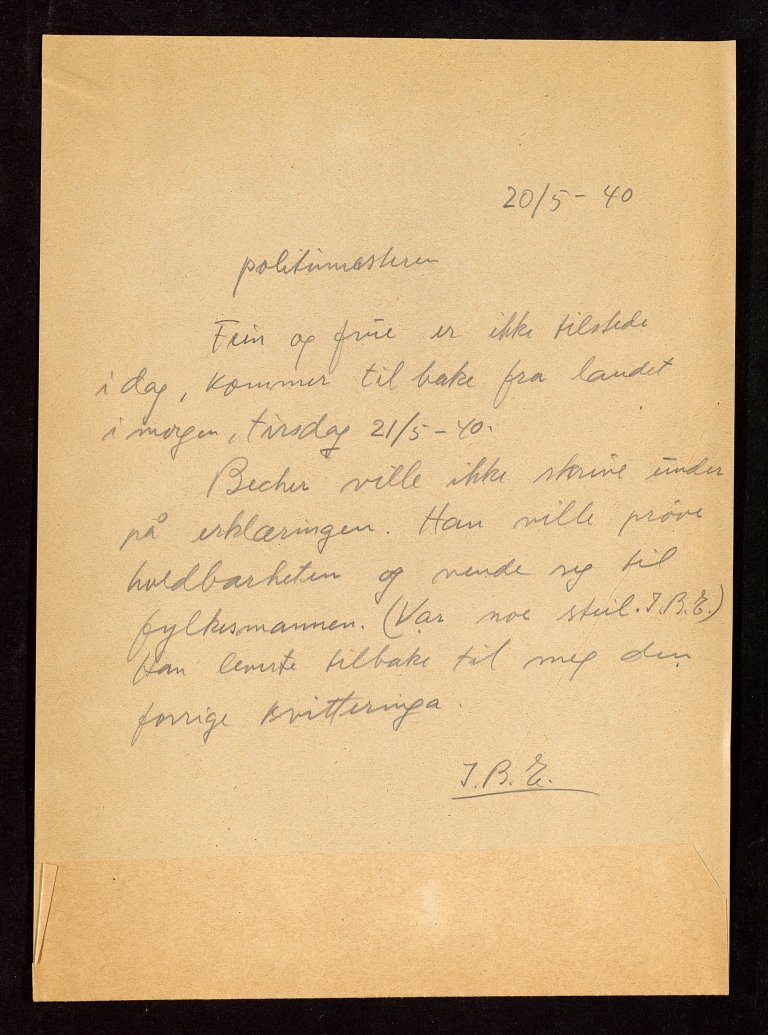 20/5 - 40
politimesteren
Fein og frue er ikke tilstede
i dag, kommer tilbake fra landet
i morgen, tirsdag 21/5 - 40.
Becher ville ikke skrive under
på erklæringen. Han ville prøve
holdbarheten og vende seg til
fylkesmannen. (Var noe steil. I.B.E.)
Han leverte tilbake til meg den
forrige kvitteringa.
I.B.E.